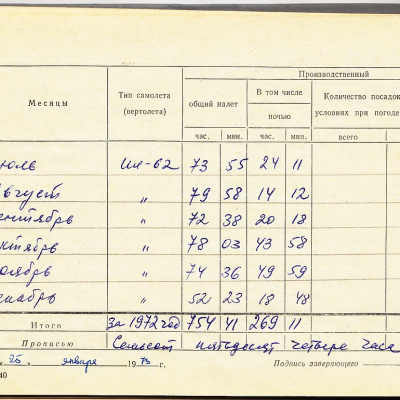 Производственный
Месяцы Тип самолета (вертолета) общий налет В том числе ночью Количество посадок
условиях при погоде
час. мин. час. мин. всего
юль Ил-62 73 55 24 11
вгуст " 79 58 14 12
ентябрь " 72 38 20 18
ктябрь " 78 03 43 58
оябрь " 74 36 49 59
екабрь " 52 23 18 48
Итого за 1972 год 754 41 269 11
Прописью Семьсот пятьдесят четыре часа
" 25 " января 1973 г. Подпись заверяющего
40